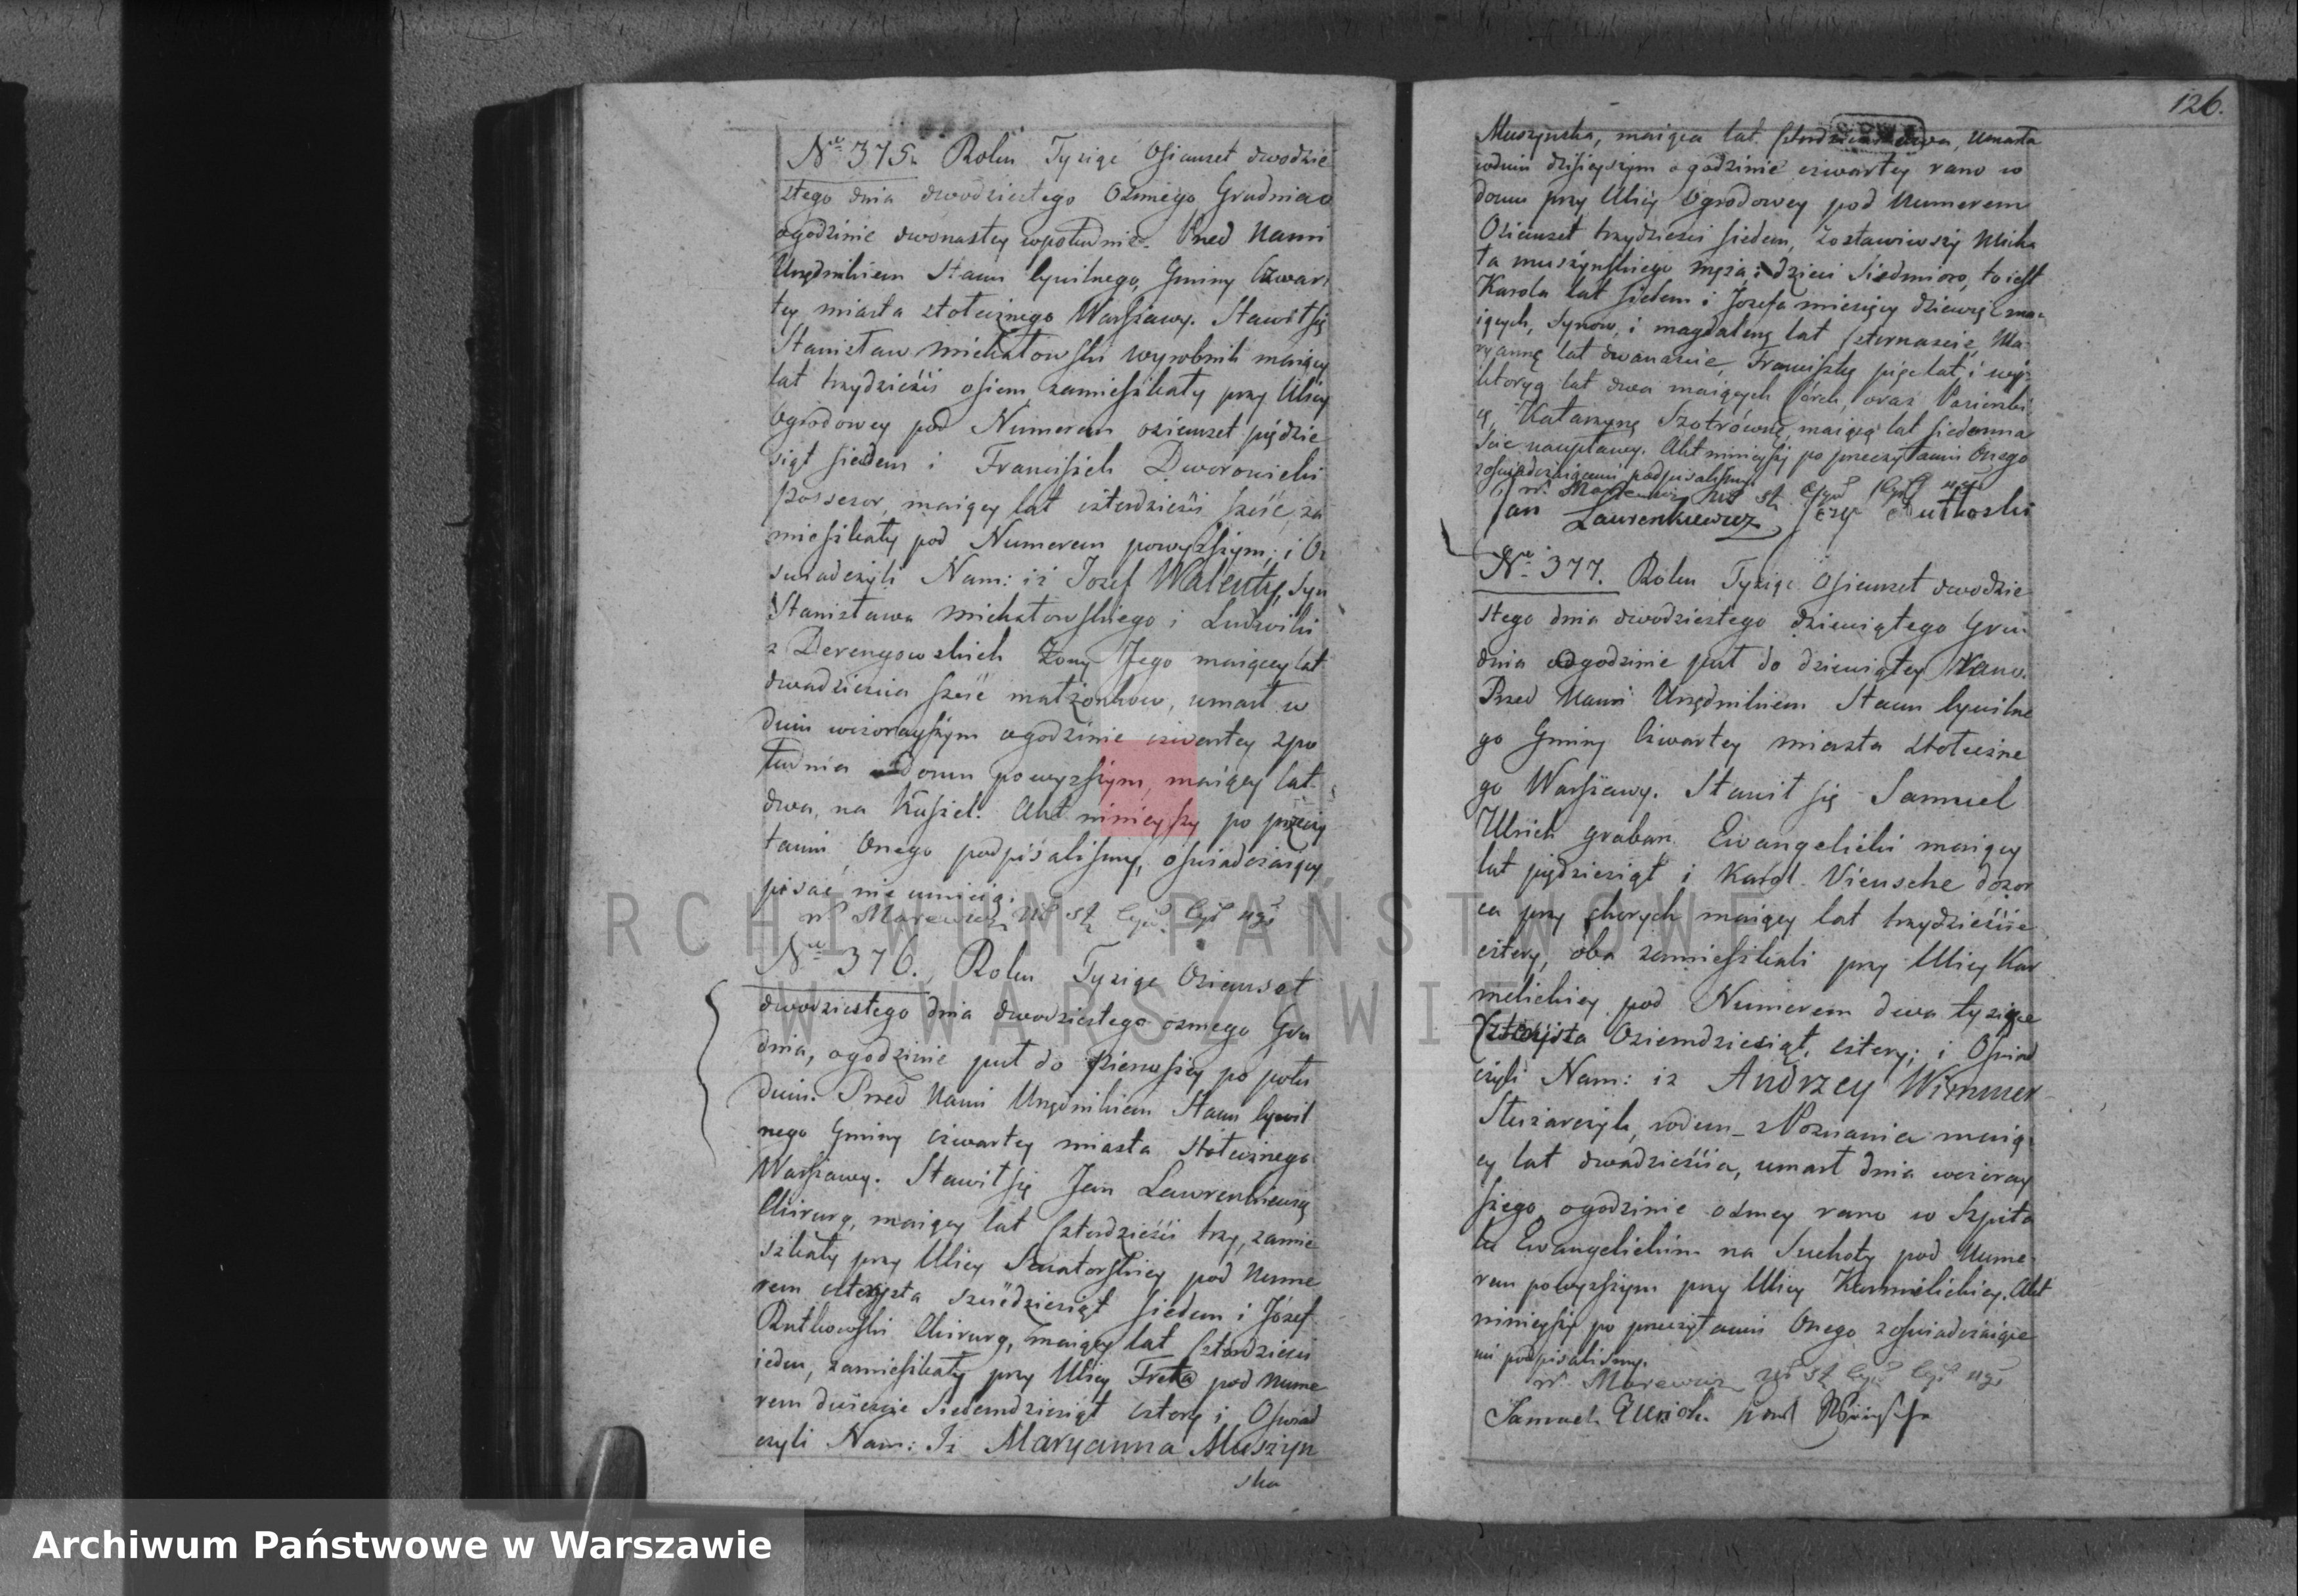 No 375. Roku Tysiąc Osiemset dwudzie
stego dnia dwudziestego Osmego Grudnia o
ogodzinie dwunastey wpołudnie. Przed Nami
Urzędnikiem Stanu Cywilnego, Gminy Czwar
tey miasta stołecznego Warszawy. Stawił się
Stanisław Michałowski wyrobnik maiący
lat trzydzieści osiem zamieszkały przy Ulicy
Ogrodowey pod Numerem osiemset pięćdzie
siąt siedem i Franciszek Dworowicki
possesor, maiący lat czterdzieści sześć za
mieszkały pod Numerem powyższym; i O
swiadczyli Nam: iż Jozef Walenty, syn
Stanisława Michałowskiego i Ludwiki
z Derengowskich Żony Jego maiącey lat
dwadzieścia sześć małżonkow, umarł w
dniu wczorayszym ogodzinie czwartey zpo
łudnia w Domu powyższym, maiący lat
dwa, na Kaszel. Akt ninieyszy po przeczy
taniu Onego podpisaliśmy, oświadczaiący
pisać nie umieią.
W. Marewicz
No 376. Roku Tysiąc Osiemset
dwudziestego dnia dwudziestego osmego Gru
dnia, ogodzinie puł do pierwszey po połu
dniu. Przed Nami Urzędnikiem Stanu Cywil
nego Gminy czwartey miasta Stołecznego
Warszawy. Stawił się Jan Lawrenkiewicz
Chirurg, maiący lat Czterdzieści trzy, zamie
szkały przy Ulicy Senatorskiey pod Nume
rem czterysta sześćdziesiąt siedem i Józef
Rutkowski Chirurg, maiący lat Czterdzieści
ieden, zamieszkały przy Ulicy Freta pod Nume
rem dwieście Siedemdziesiąt cztery i Oświad
czyli Nam: Iż Maryanna Muszyn
ska
126.
Muszynska, maiąca lat Czterdzieści dwa, Umarła
wdniu dzisieyszym ogodzinie czwartey rano w
domu przy Ulicy Ogrodowey pod Numerem
Osiemset trzydzieści siedem, Zostawiwszy Micha
ła muszynskiego męża; dzieci Siedmioro, to iest
Karola lat siedem i Józefa miesięcy dziewięć ma
iących, Synow, i magdalenę lat Czternascie, Ma
ryannę lat dwanaście, Franciszkę pięć lat, i
lat dwa maiących Córek, oraz Pasierbi
cę Katarzynę maiącą lat siedmna
ście. Akt ninieyszy po przeczytaniu Onego
zoświadczaiącemi podpisaliśmy.
W. Marewicz
Jan Laurenkiewicz Rutkoski
No 377. Roku Tysiąc Osiemset dwudzie
stego dnia dwudziestego dziewiątego Gru
dnia ogodzinie puł do dziewiątey Rano.
Przed Nami Urzędnikiem Stanu Cywilne
go Gminy Czwartey miasta Stołeczne
go Warszawy. Stawił się Samuel
Ulrich grabarz Ewangelicki maiący
lat pięćdziesiąt i Karol Viensche dozor
ca przy chorych maiący lat trzydzieście
cztery, oba zamieszkali przy Ulicy Kar
melickiey pod Numerem dwa tysiące
Czterysta Osiemdziesiąt, cztery; i Oświad
czyli Nam: iż Andrzey Wimmer
Sluzarczyk, rodem z Poznania maią
cy lat dwadzieścia, umarł dnia wczoray
szego ogodzinie osmey rano w Szpita
lu Ewangelickim na Suchoty pod Nume
rem powyższym przy Ulicy Karmelickiey. Akt
ninieyszy po przeczytaniu Onego zoświadczaiące
mi podpisalismy.
W. Marewicz
Samuel Ullrich
ARCHIWUM PAŃSTWOWE
W WARSZAWIE
Archiwum Państwowe w Warszawie